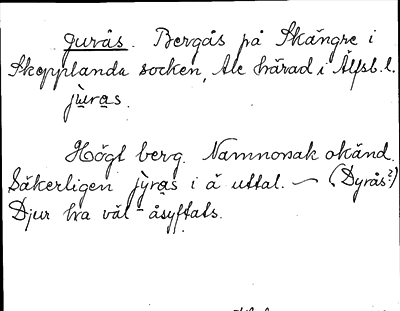 Jurås. Bergås på Skängre i
Skepplanda socken, Ale härad i Älfsb. l.
jùras.
Högt berg. Namnorsak okänd.
Säkerligen jỳras i ä uttal. — (Dyrås?)
Djur tra väl - åsyftats.